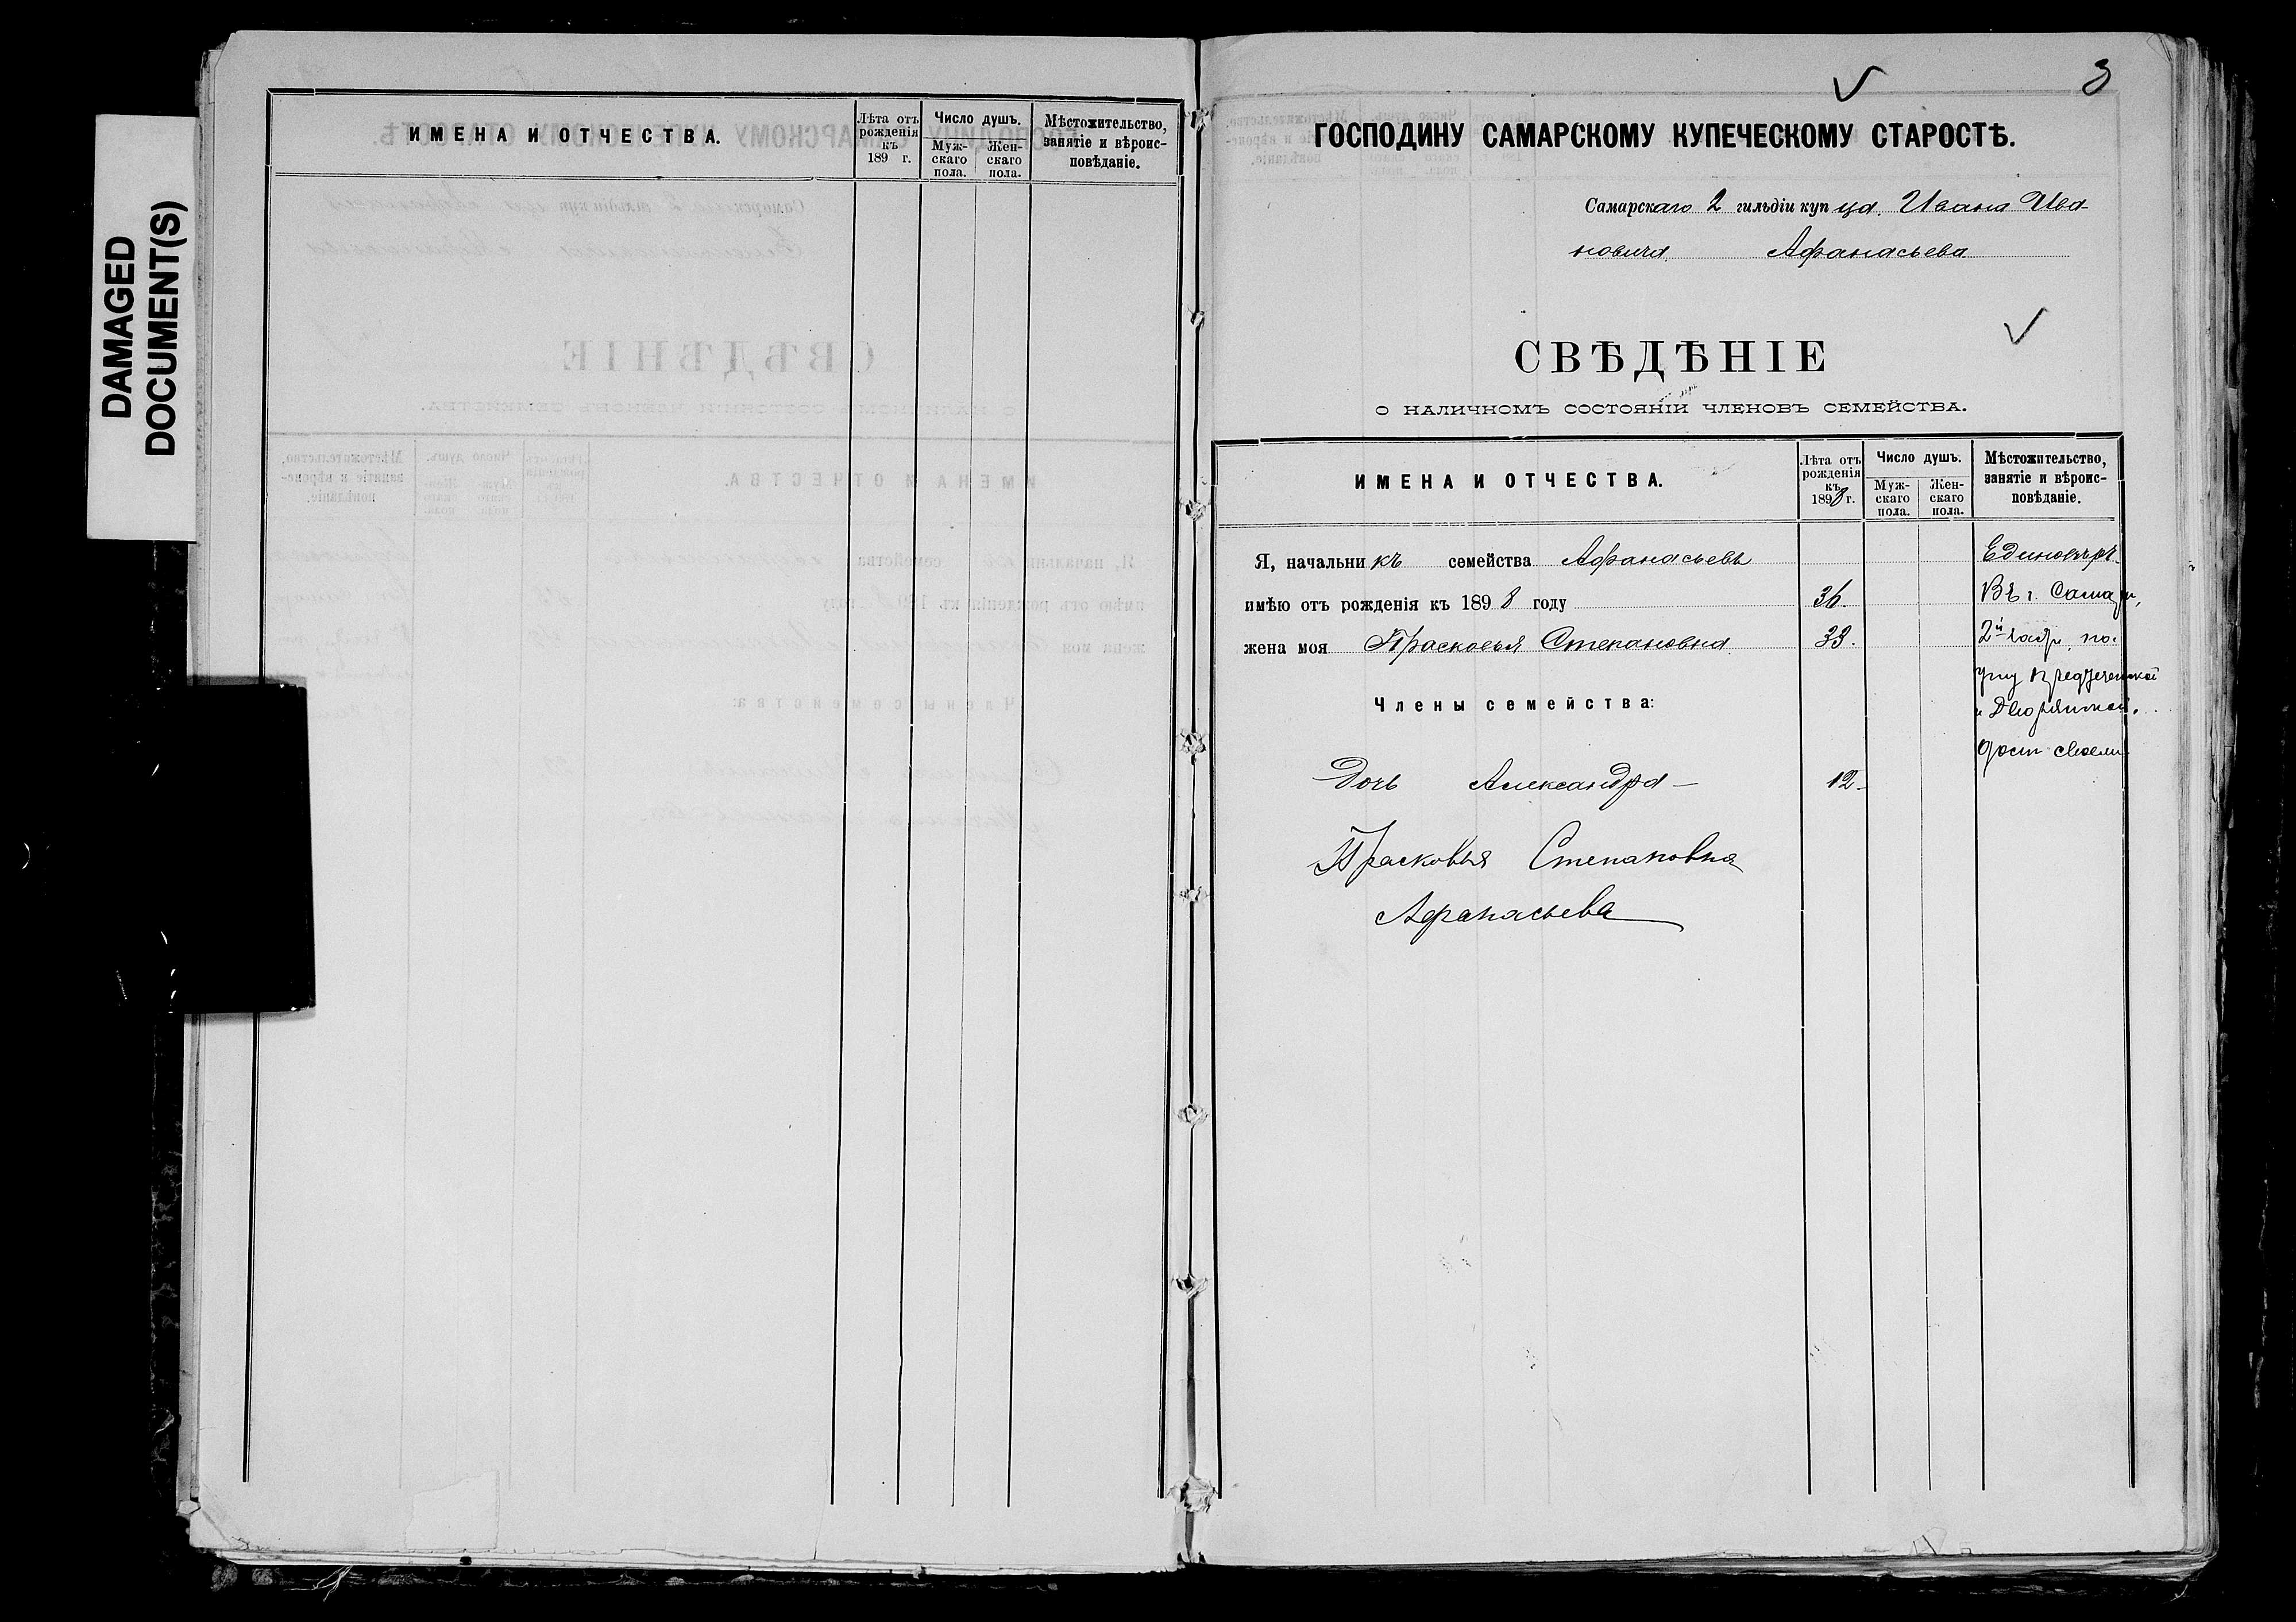 DAMAGED
DOCUMENT(S)
ИМЕНА И ОТЧЕСТВА.
Лѣта отъ
рожденія
къ
189 г.
Число душъ.
Муж-
скаго
пола.
Жен-
скаго
пола.
Мѣстожительство,
занятіе и вѣроис-
повѣданіе.
3
ГОСПОДИНУ САМАРСКОМУ КУПЕЧЕСКОМУ СТАРОСТѢ.
Самарскаго 2 гильдіи купца Ивана Ива-
новича Афанасьева
СВѢДѢНІЕ
О НАЛИЧНОМЪ СОСТОЯНІИ ЧЛЕНОВЪ СЕМЕЙСТВА.
ИМЕНА И ОТЧЕСТВА.
Лѣта отъ
рожденія
къ
1898 г.
Число душъ.
Муж-
скаго
пола.
Жен-
скаго
пола.
Мѣстожительство,
занятіе и вѣроис-
повѣданіе.
Я, начальникъ семейства Афанасьевъ
Единовѣр.
имѣю отъ рожденія къ 1898 году 36.
Въ г. Самарѣ,
жена моя Прасковья Степановна 33.
2й части, по
углу Предтеченской
Члены семейства:
и Дворянской,
домъ
Дочь Александра — 12
Прасковья Степановна
Афанасьева